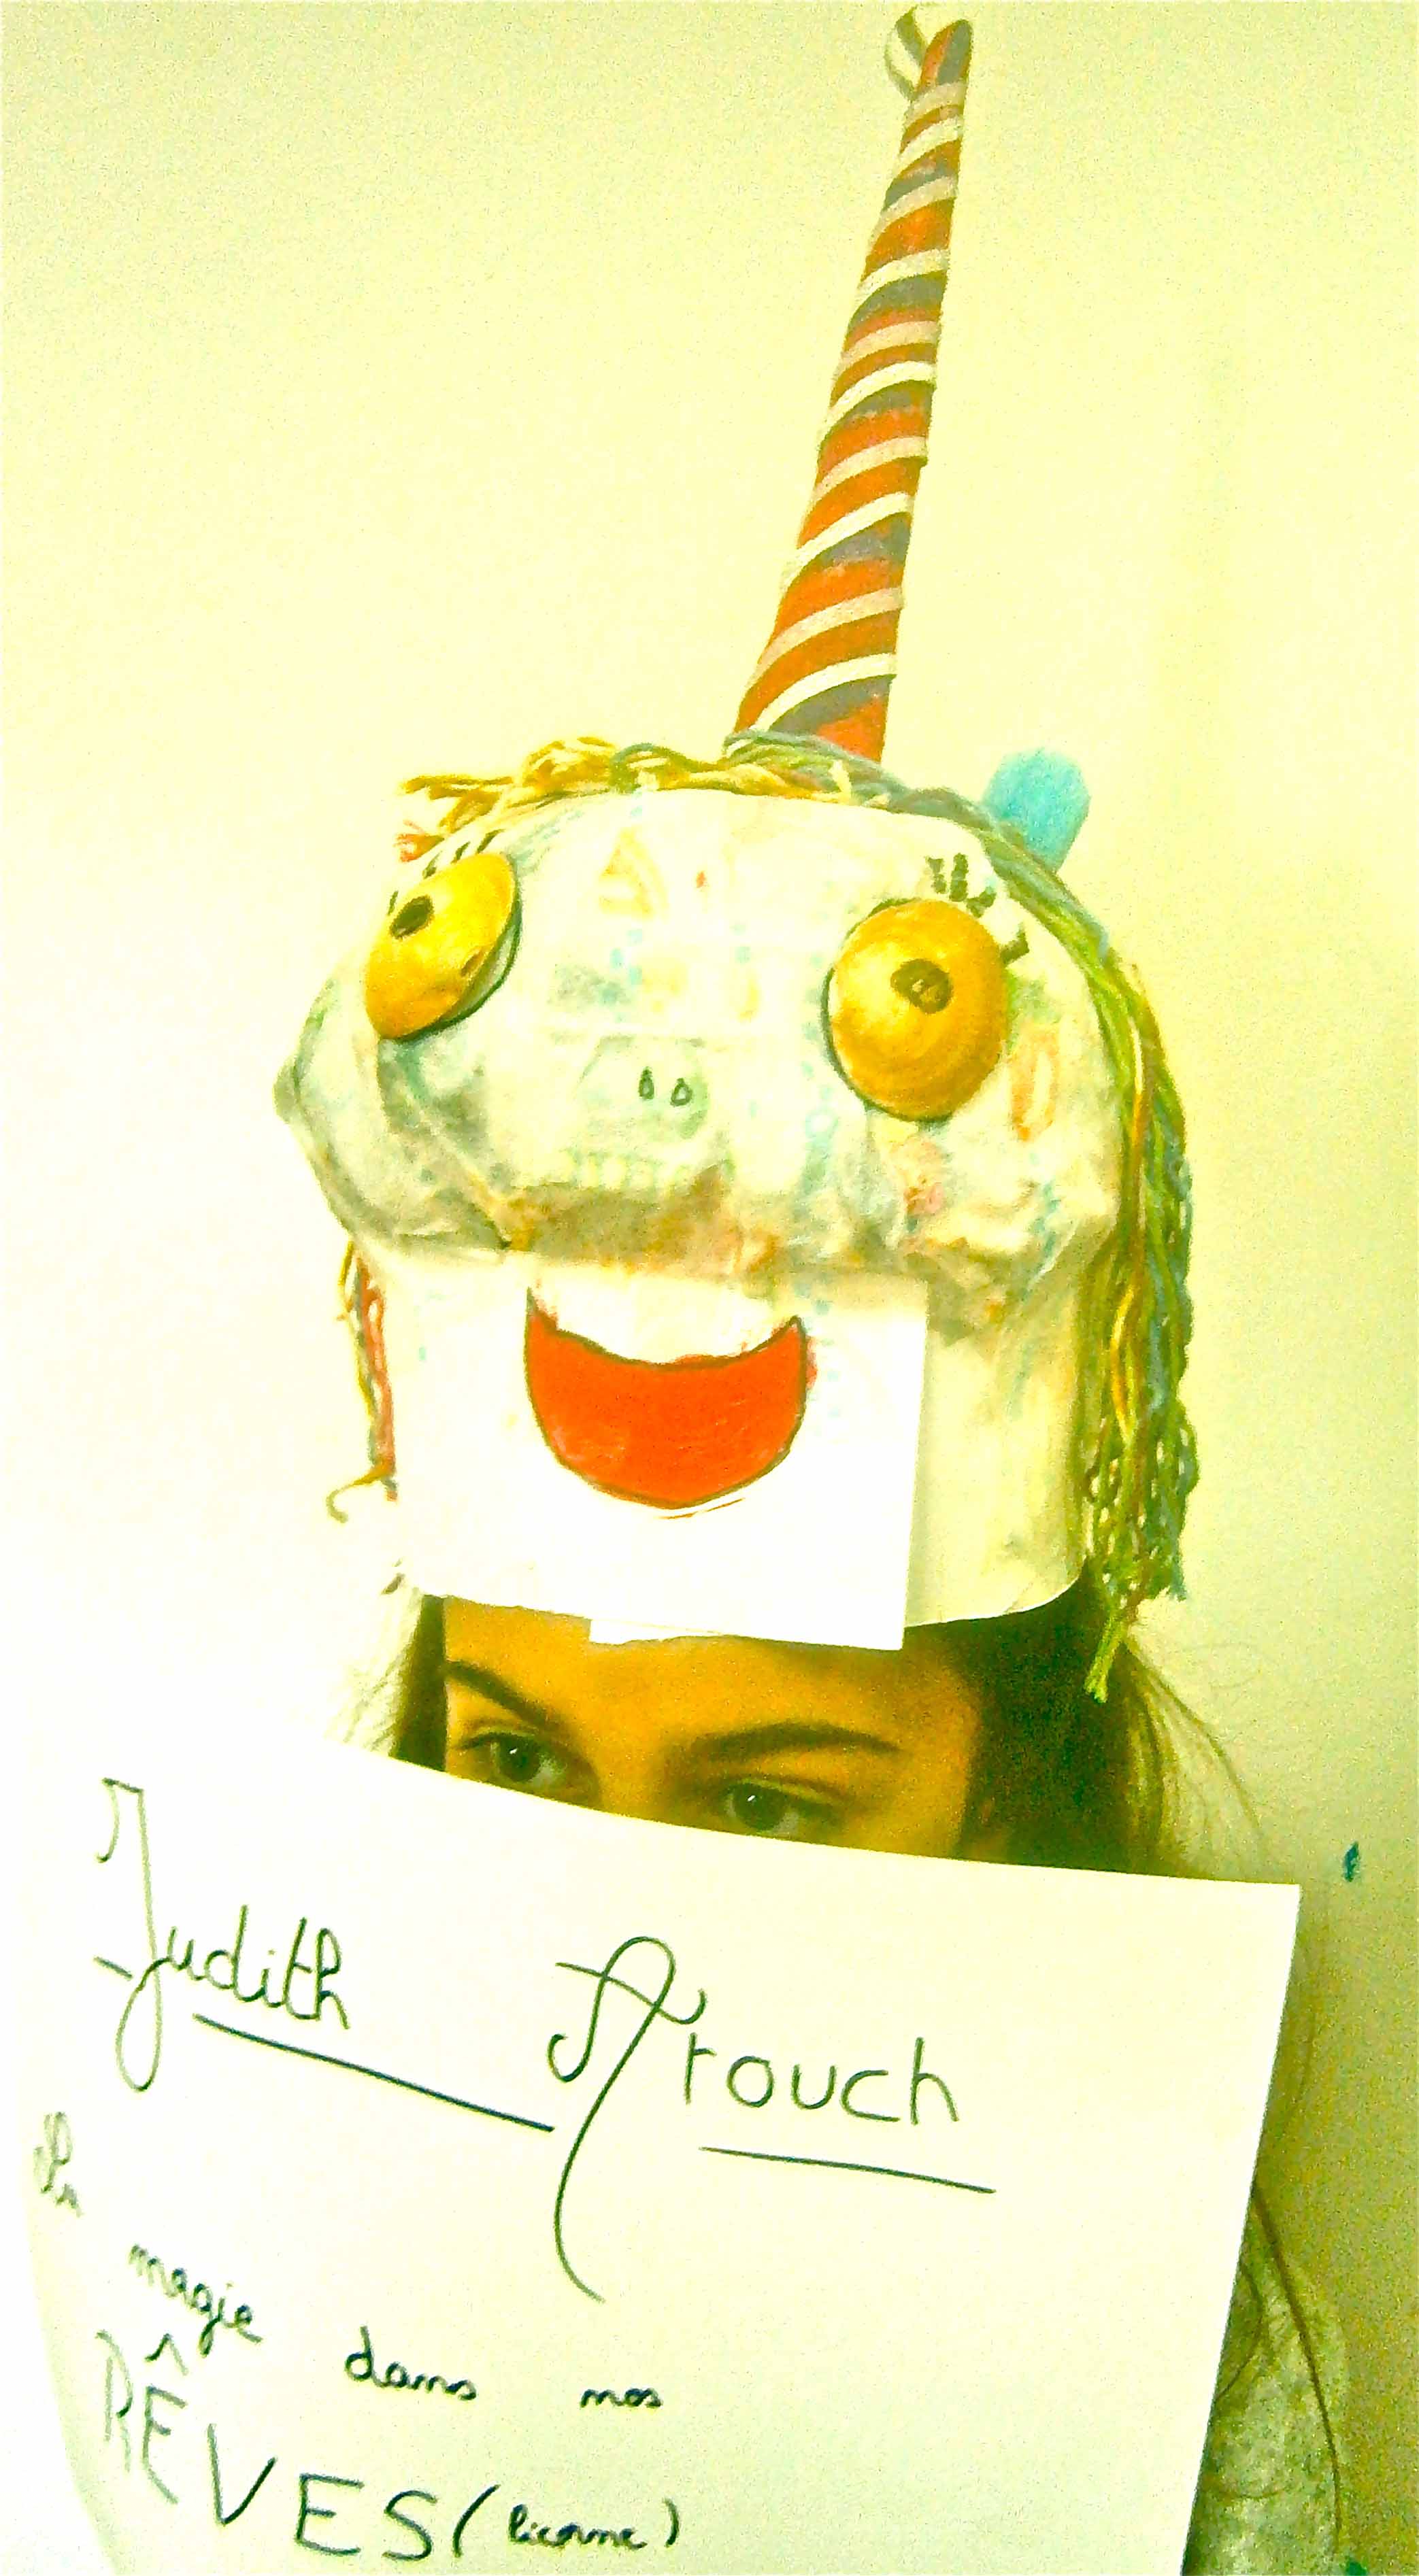 Judith Arouch
La
magie dans nos
RÊVES (licorne)